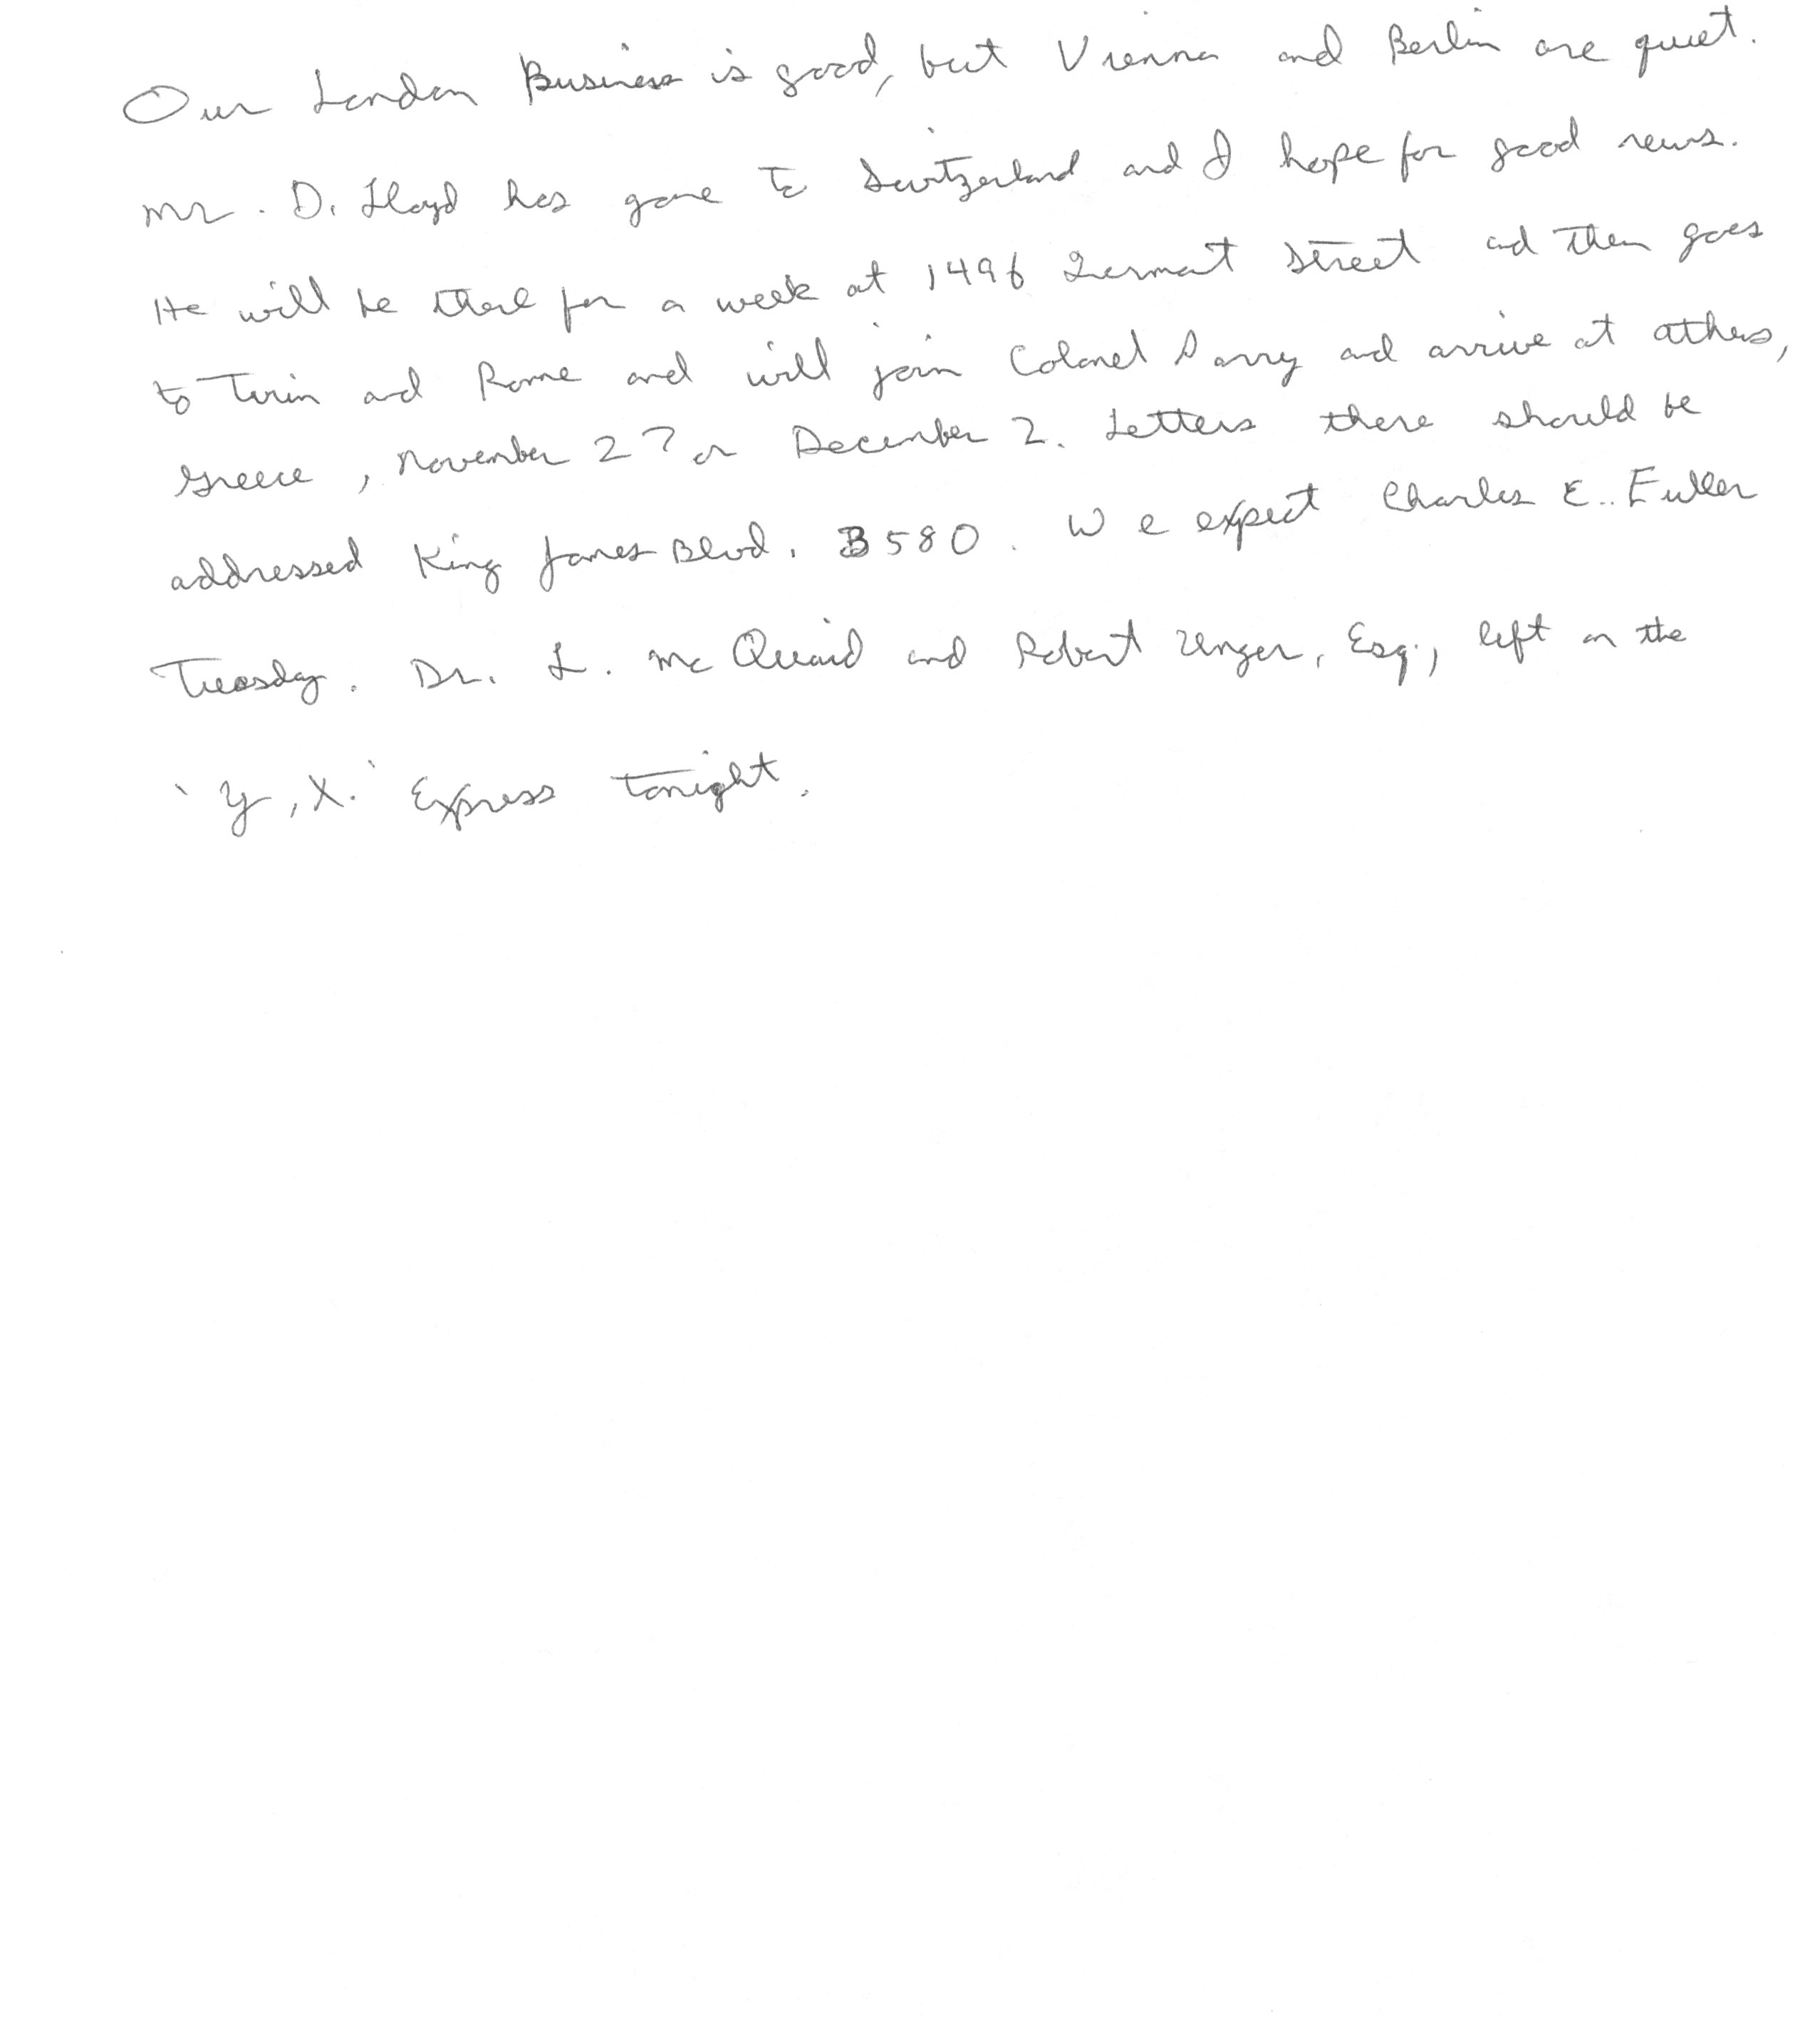 Our London Business is good, but Vienna and Berlin are quiet.
Mr. D. Lloyd has gone to Switzerland and I hope for good news.
He will be there for a week at 1496 Zermott Street and then goes
to Turin and Rome and will join Colonel Parry and arrive at Athens,
Greece, November 27 or December 2. Letters there should be
addressed King James Blvd. B580. We expect Charles E. Fuller
Tuesday. Dr. L. Mc Quaid and Robert Unger, Esq., left on the
'Y, X.' Express tonight.